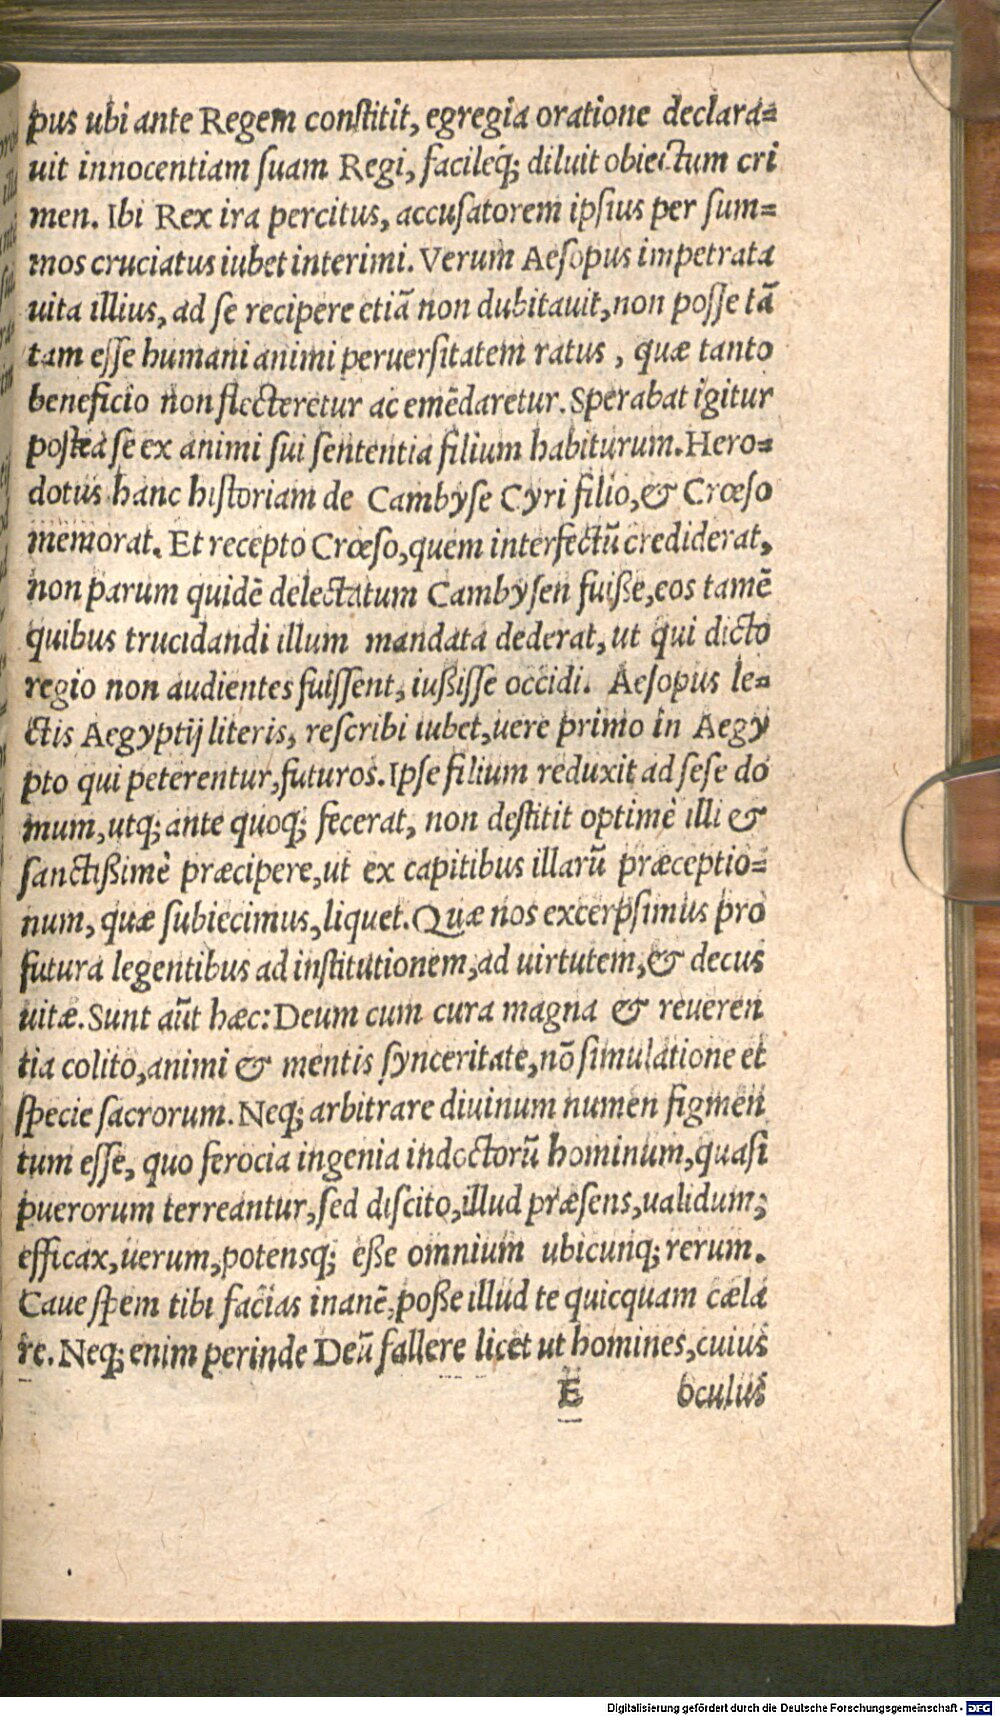 pus ubi ante Regem constitit, egregia oratione declara=
uit innocentiam suam Regi, facileq́; diluit obiectum cri
men. Ibi Rex ira percitus, accusatorem ipsius per sum=
mos cruciatus iubet interimi. Verum Aesopus impetrata
uita illius, ad se recipere etiã non dubitauit, non posse tã
tam esse humani animi peruersitatem ratus, quæ tanto
beneficio non flecteretur ac emẽdaretur. Sperabat igitur
postea se ex animi sui sententia filium habiturum. Hero=
dotus hanc historiam de Cambyse Cyri filio, & Crœso
memorat. Et recepto Crœso, quem interfectũ crediderat,
non parum quidẽ delectatum Cambysen fuiße, eos tamẽ
quibus trucidandi illum mandata dederat, ut qui dicto
regio non audientes fuissent, iußisse occidi. Aesopus le=
ctis Aegyptij literis, rescribi iubet, uere primo in Aegy
pto qui peterentur, futuros. Ipse filium reduxit ad sese do
mum, utq; ante quoq; fecerat, non destitit optimè illi &
sanctißimè præcipere, ut ex capitibus illarũ præceptio=
num, quæ subiecimus, liquet. Quæ nos excerpsimus pro
futura legentibus ad institutionem, ad uirtutem, & decus
uitæ. Sunt aũt hæc: Deum cum cura magna & reueren
tia colito, animi & mentis synceritate, nõ simulatione et
specie sacrorum. Neq; arbitrare diuinum numen figmen
tum esse, quo ferocia ingenia indoctorũ hominum, quasi
puerorum terreantur, sed discito, illud præsens, ualidum,
efficax, uerum, potensq; eße omnium ubicunq; rerum.
Caue spem tibi facias inanẽ, poße illud te quicquam cæla
re. Neq; enim perinde Deũ fallere licet ut homines, cuius
E oculus
Digitalisierung gefördert durch die Deutsche Forschungsgemeinschaft - DFG